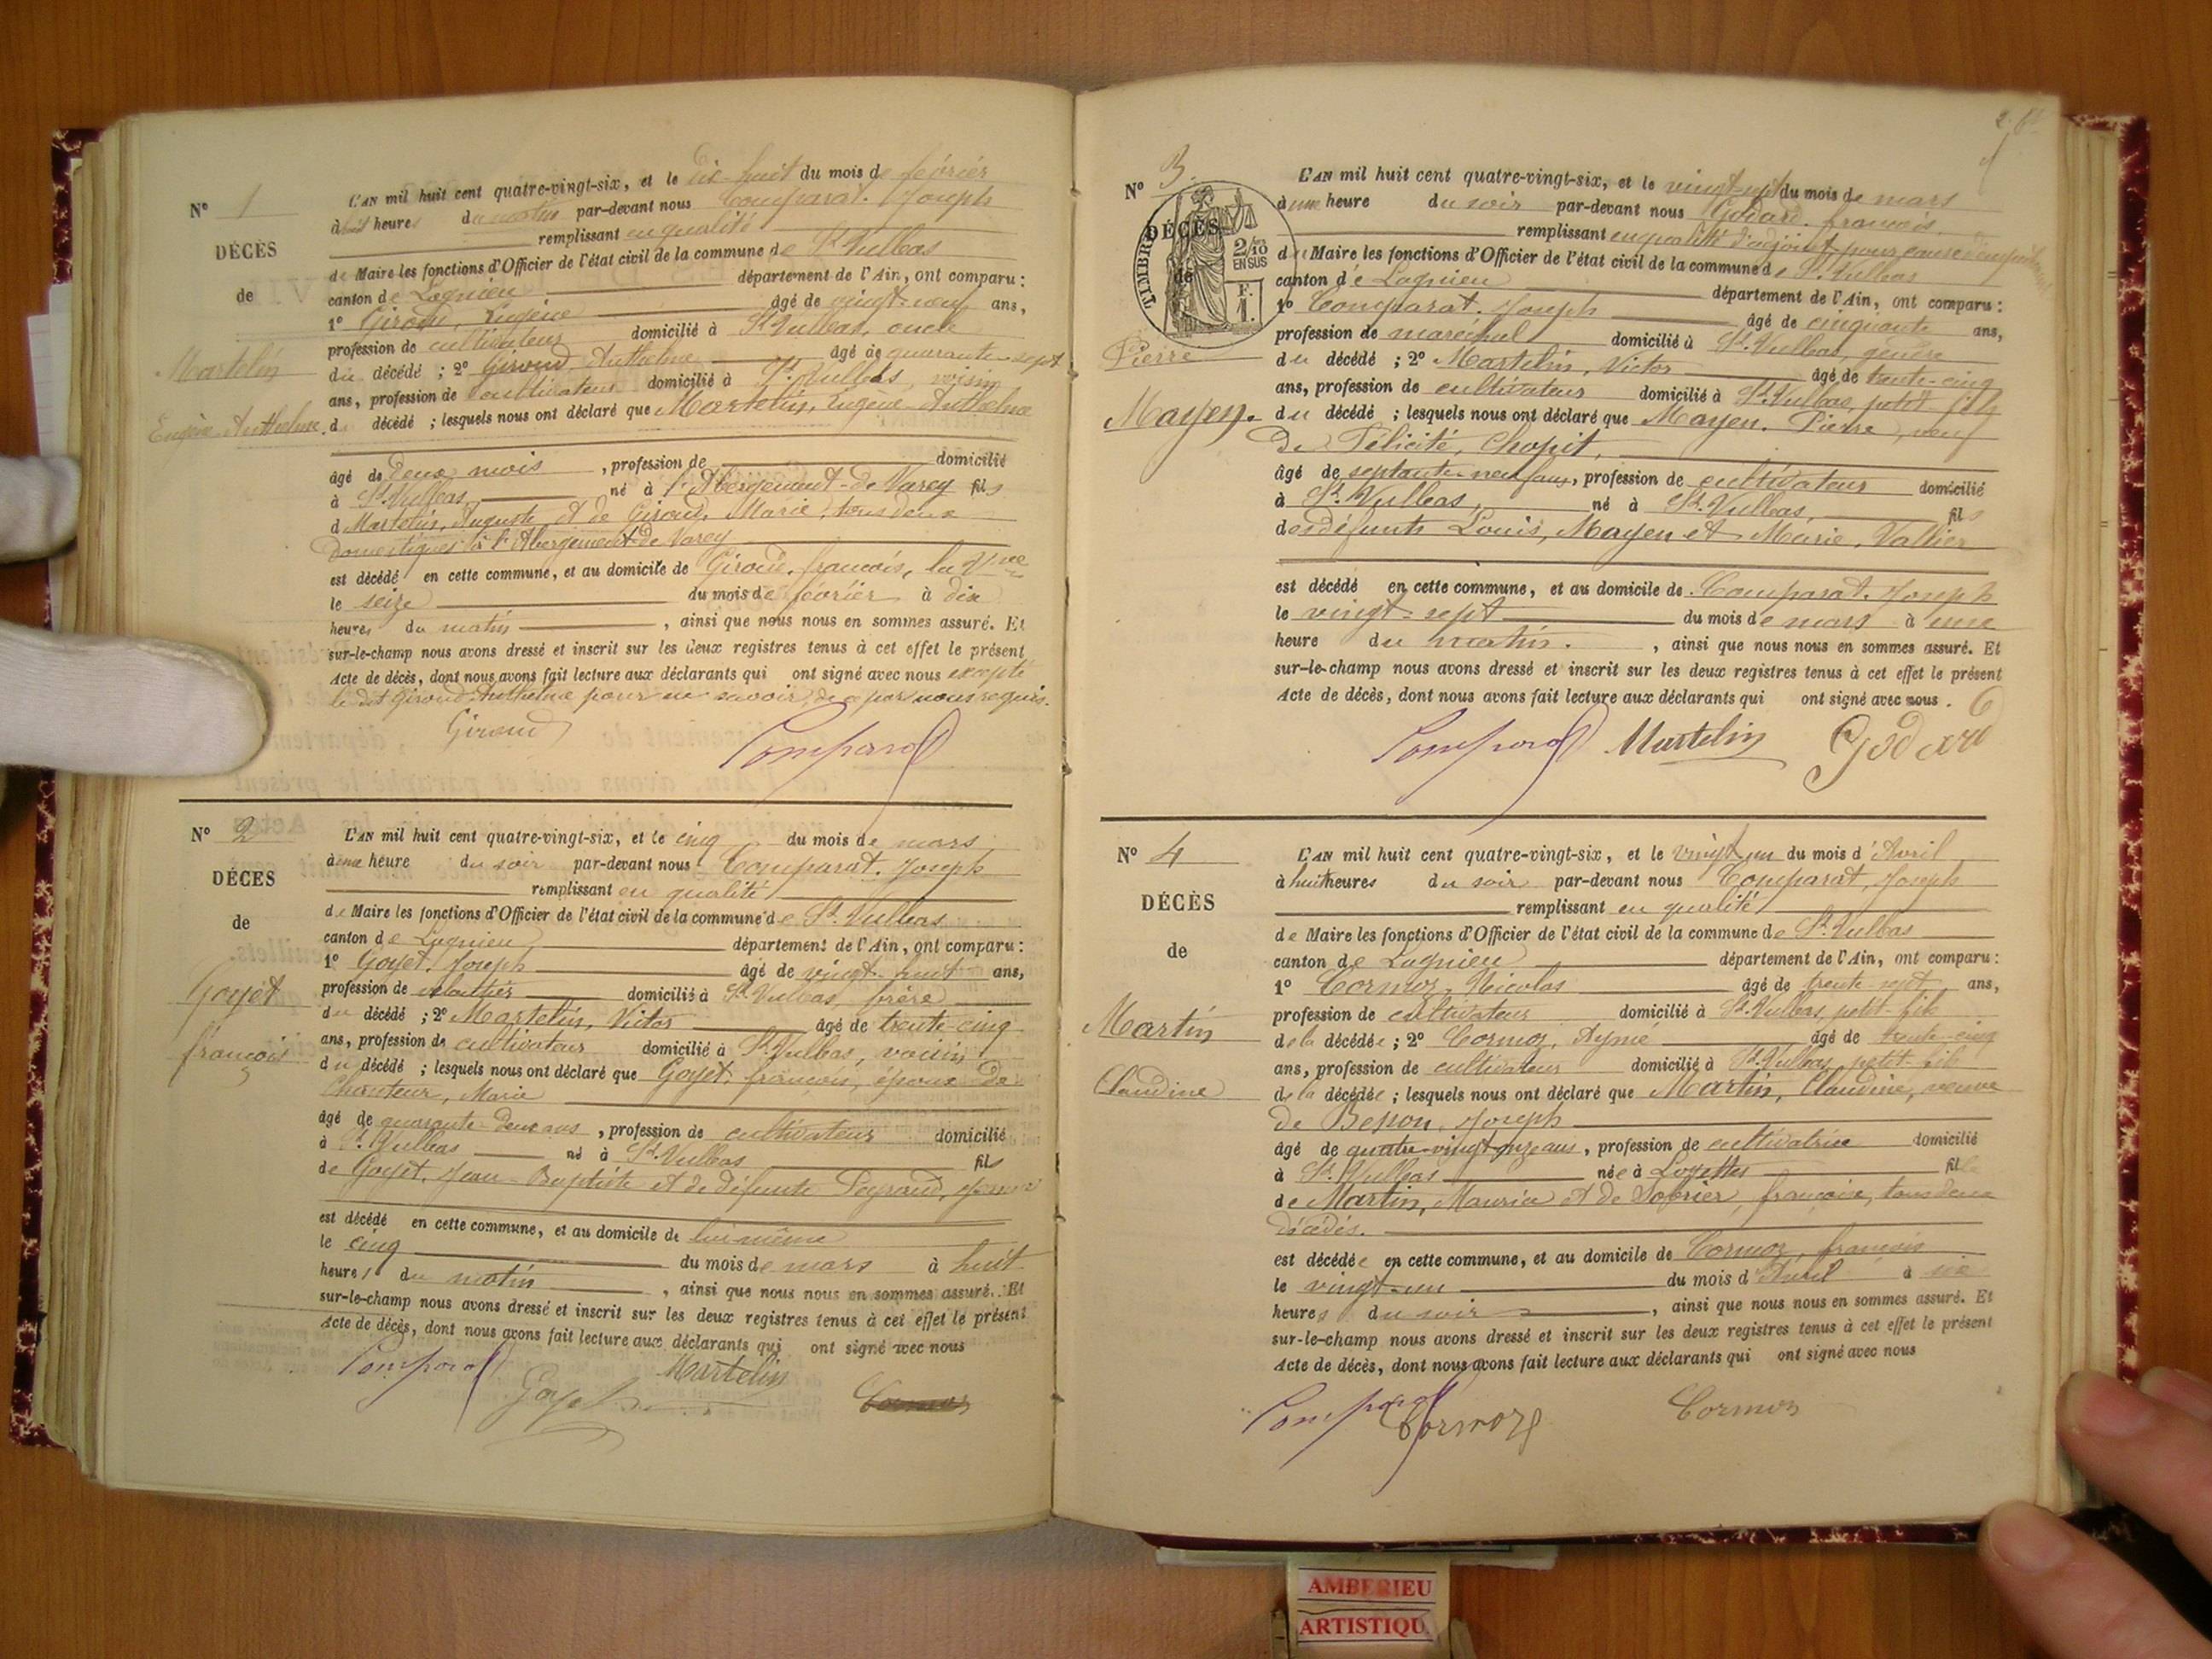 N° 1
DÉCÈS
de
Martelin
Eugène Anthelme
L'AN mil huit cent quatre-vingt-six, et le dix-huit du mois de février
à huit heures du matin par-devant nous Comparat. Joseph
remplissant en qualité
de Maire les fonctions d'Officier de l'état civil de la commune de St Vulbas
canton de Lagnieu département de l'Ain, ont comparu :
1° Giroud, Eugène âgé de vingt-neuf ans,
profession de cultivateur domicilié à St Vulbas, oncle
du décédé ; 2° Giroud Anthelme âgé de quarante-sept
ans, profession de cultivateur domicilié à St Vulbas, voisin
d décédé ; lesquels nous ont déclaré que Martelin, Eugène Anthelme
âgé de deux mois , profession de domicilié
à St Vulbas né à l'Abergement-de Varey fils
d Martelin, Auguste et de Giroud, Marie, tous deux
domestiques à l'Abergement de Varey
est décédé en cette commune, et au domicile de Giroud, francois,
le seize du mois de février à dix
heures du matin , ainsi que nous nous en sommes assuré. Et
sur-le-champ nous avons dressé et inscrit sur les deux registres tenus à cet effet le présent
Acte de décès, dont nous avons fait lecture aux déclarants qui ont signé avec nous excepté
le dit Giroud Anthelme pour ne savoir, de ce par nous requis.
Giroud Comparat
N° 2
DÉCES
de
Goyet
francois
L'AN mil huit cent quatre-vingt-six, et le cinq du mois de mars
à une heure du soir par-devant nous Comparat. Joseph
remplissant en qualité
de Maire les fonctions d'Officier de l'état civil de la commune de St Vulbas
canton de Lagnieu département de l'Ain, ont comparu :
1° Goyet. Joseph âgé de vingt-huit ans,
profession de domicilié à St Vulbas, frère
du décédé ; 2° Martelin, Victor âgé de trente-cinq
ans, profession de cultivateur domicilié à St Vulbas, voisin
du décédé ; lesquels nous ont déclaré que Goyet, francois, époux de
Chanteur, Marie
âgé de quarante-deux ans , profession de cultivateur domicilié
à St Vulbas né à St Vulbas fils
de Goyet. Jean-Baptiste et de défunte
est décédé en cette commune, et au domicile de lui même
le cinq du mois de mars à huit
heures du matin , ainsi que nous nous en sommes assuré. Et
sur-le-champ nous avons dressé et inscrit sur les deux registres tenus à cet effet le présent
Acte de décès, dont nous avons fait lecture aux déclarants qui ont signé avec nous
Comparat Goyet Martelin
N° 3.
DÉCÈS
de
TIMBRE
2/10
EN SUS
F.
1.
Pierre
Mayen.
L'AN mil huit cent quatre-vingt-six, et le vingt-sept du mois de mars
à une heure du soir par-devant nous Godard. francois.
remplissant en qualité d'adjoint pour cause d'empêchement
du Maire les fonctions d'Officier de l'état civil de la commune de St Vulbas
canton de Lagnieu département de l'Ain, ont comparu :
1° Comparat. Joseph âgé de cinquante ans,
profession de maréchal domicilié à St Vulbas, gendre
du décédé ; 2° Martelin, Victor âgé de trente-cinq
ans, profession de cultivateur domicilié à St Vulbas, petit-fils
du décédé ; lesquels nous ont déclaré que Mayen. Pierre, veuf
de Félicité, Chopit,
âgé de septante-neuf ans, profession de cultivateur domicilié
à St Vulbas, né à St Vulbas, fils
des défunts Louis, Mayen et Marie, Vallier
est décédé en cette commune, et au domicile de Comparat. Joseph
le vingt-sept du mois de mars à une
heure du matin. , ainsi que nous nous en sommes assuré. Et
sur-le-champ nous avons dressé et inscrit sur les deux registres tenus à cet effet le présent
Acte de décès, dont nous avons fait lecture aux déclarants qui ont signé avec nous .
Comparat Martelin Godard
N° 4
DÉCÈS
de
Martin
Claudine
L'AN mil huit cent quatre-vingt-six, et le vingt un du mois d'Avril
à huit heures du soir par-devant nous Comparat, Joseph
remplissant en qualité
de Maire les fonctions d'Officier de l'état civil de la commune de St Vulbas
canton de Lagnieu département de l'Ain, ont comparu :
1° Cormoz, Nicolas âgé de trente-sept ans,
profession de cultivateur domicilié à St Vulbas, petit-fils
de la décédée ; 2° Cormoz, Aymé âgé de trente-cinq
ans, profession de cultivateur domicilié à St Vulbas, petit-fils
de la décédée ; lesquels nous ont déclaré que Martin, Claudine, veuve
de Besson, Joseph
âgé de quatre-vingt-onze ans, profession de cultivatrice domicilié
à St Vulbas née à Loyettes fille
de Martin, Maurice et de françoise, tous deux
décédés.
est décédée en cette commune, et au domicile de Cormoz, francois
le vingt-un du mois d'Avril à six
heures du soir , ainsi que nous nous en sommes assuré. Et
sur-le-champ nous avons dressé et inscrit sur les deux registres tenus à cet effet le présent
Acte de décès, dont nous avons fait lecture aux déclarants qui ont signé avec nous
Comparat Cormoz Cormoz
AMBERIEU
ARTISTIQU